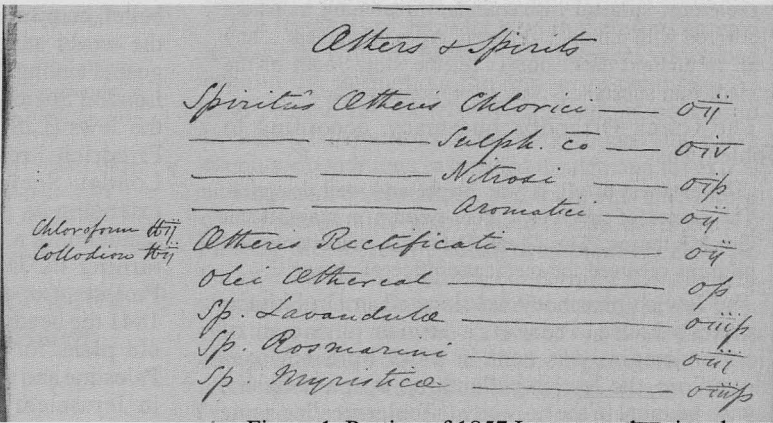 Æthers & Spirits
Spiritûs Ætheris Chlorici — Oij
— — Sulph. co — Oiv
— — Nitrosi — Oiß
— — Aromatici — Oij
Chloroform ℔ij
Collodion ℔ij
Ætheris Rectificati — Oij
Olei Æthereal — Oß
Sp. Lavandulæ — Oiiiß
Sp. Rosmarini — Oiii
Sp. Myristicæ — Oiiiß
Figure 1. Portion of 1857